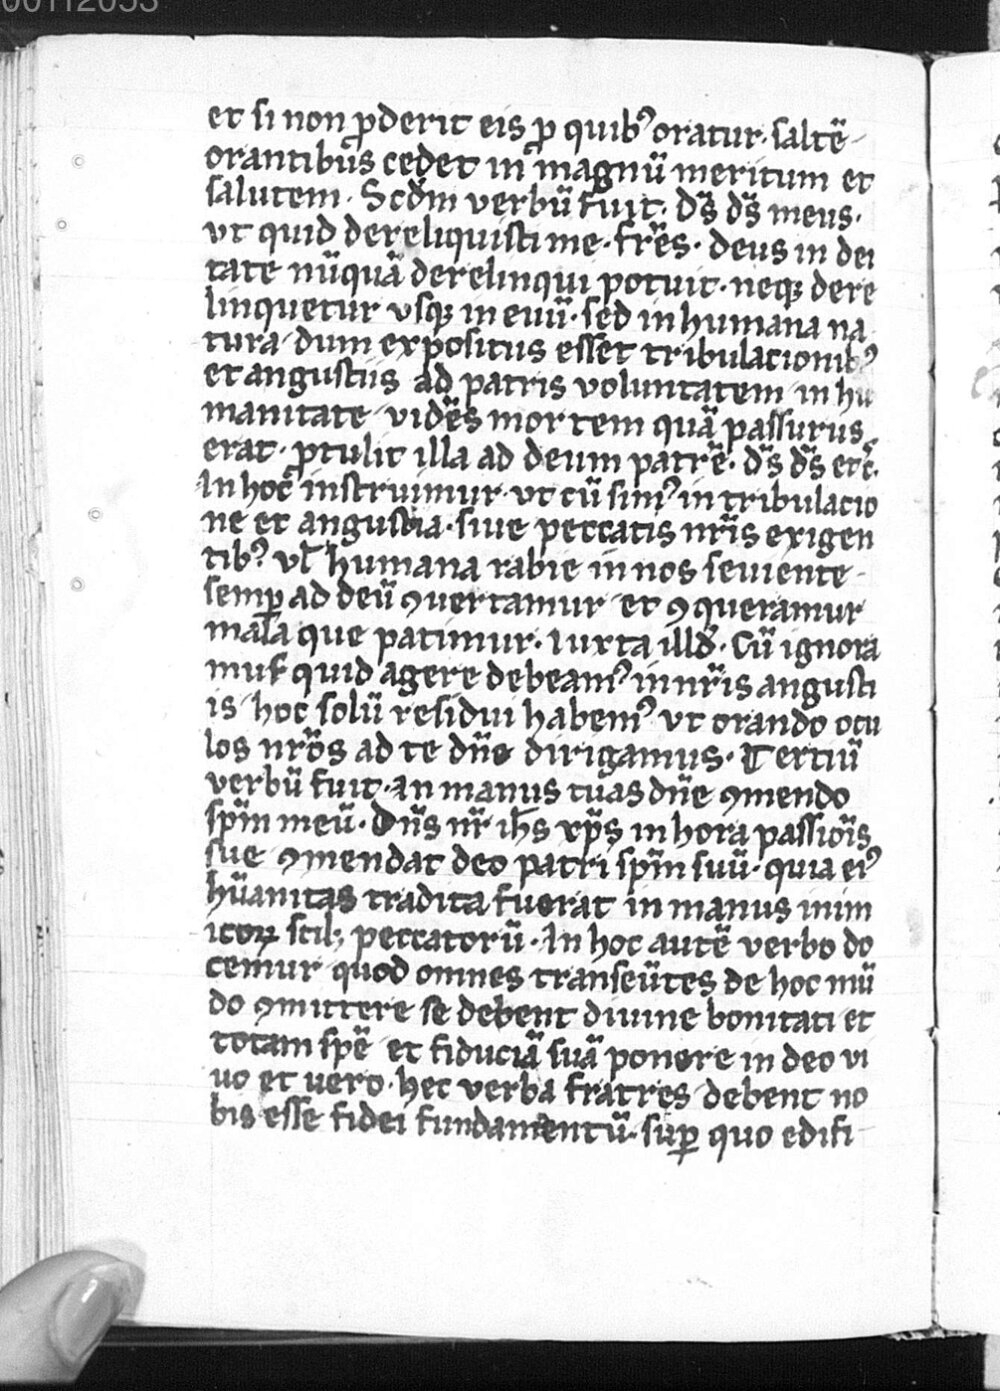 00112053
et si non ꝓderit eis ꝓ quibꝰ oratur · saltē
orantibus cedet in magnū meritum et
salutem · Scd̄m verbū fuit · dn̄s dn̄s meus ·
vt quid dereliquisti me · fr̄es · deus in dei
tate nūquā derelinqui potuit · neqꝫ dere
linquetur vsqꝫ in euū · sed in humana na
tura dum expositus esset tribulacionibꝰ
et angustiis ad patris voluntatem in hu
manitate vidēs mortem quā passurus
erat · ꝓtulit illa ad deum patrē · dn̄s dn̄s etc̄ ·
In hoc instruimur vt cū simꝰ in tribulacio
ne et angustia · siue peccatis nr̄is exigen
tibꝰ vl̄ humana rabie in nos seuiente
semꝑ ad deū ꝯuertamur et ꝯqueramur
mala que patimur · iuxta illd̄ · Cū ignora
mus quid agere debeamꝰ in nr̄is angusti
is hoc solū residui habemꝰ vt orando ocu
los nr̄os ad te dn̄e dirigamus · Tertiū
verbū fuit · In manus tuas dn̄e ꝯmendo
sp̄m meū · Dn̄s nr̄ ih̄s xp̄s in hora passiōis
sue ꝯmendat deo patri sp̄m suū · quia eiꝰ
hūanitas tradita fuerat in manus inim
icoꝝ scilꝫ peccatorū · In hoc autē verbo do
cemur quod omnes transeūtes de hoc mū
do ꝯmittere se debent diuine bonitati et
totam spē et fiduciā suā ponere in deo vi
uo et uero · hec verba fratres debent no
bis esse fidei fundamentū · suꝑ quo edifi